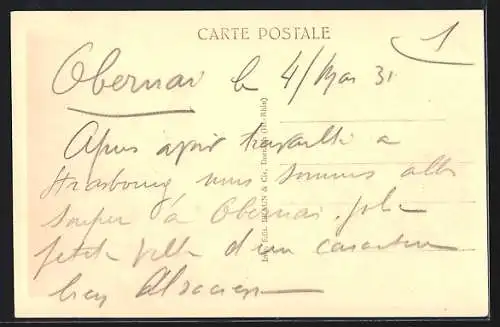 CARTE POSTALE
1
Obernai le 4/Mai 31
Après avoir travaillé a
Strasbourg nous sommes allés
souper à Obernai. jolie
petite ville d'un caractère
bien Alsacien
Édit. BRAUN & Cie, Dornach (Ht-Rhin)